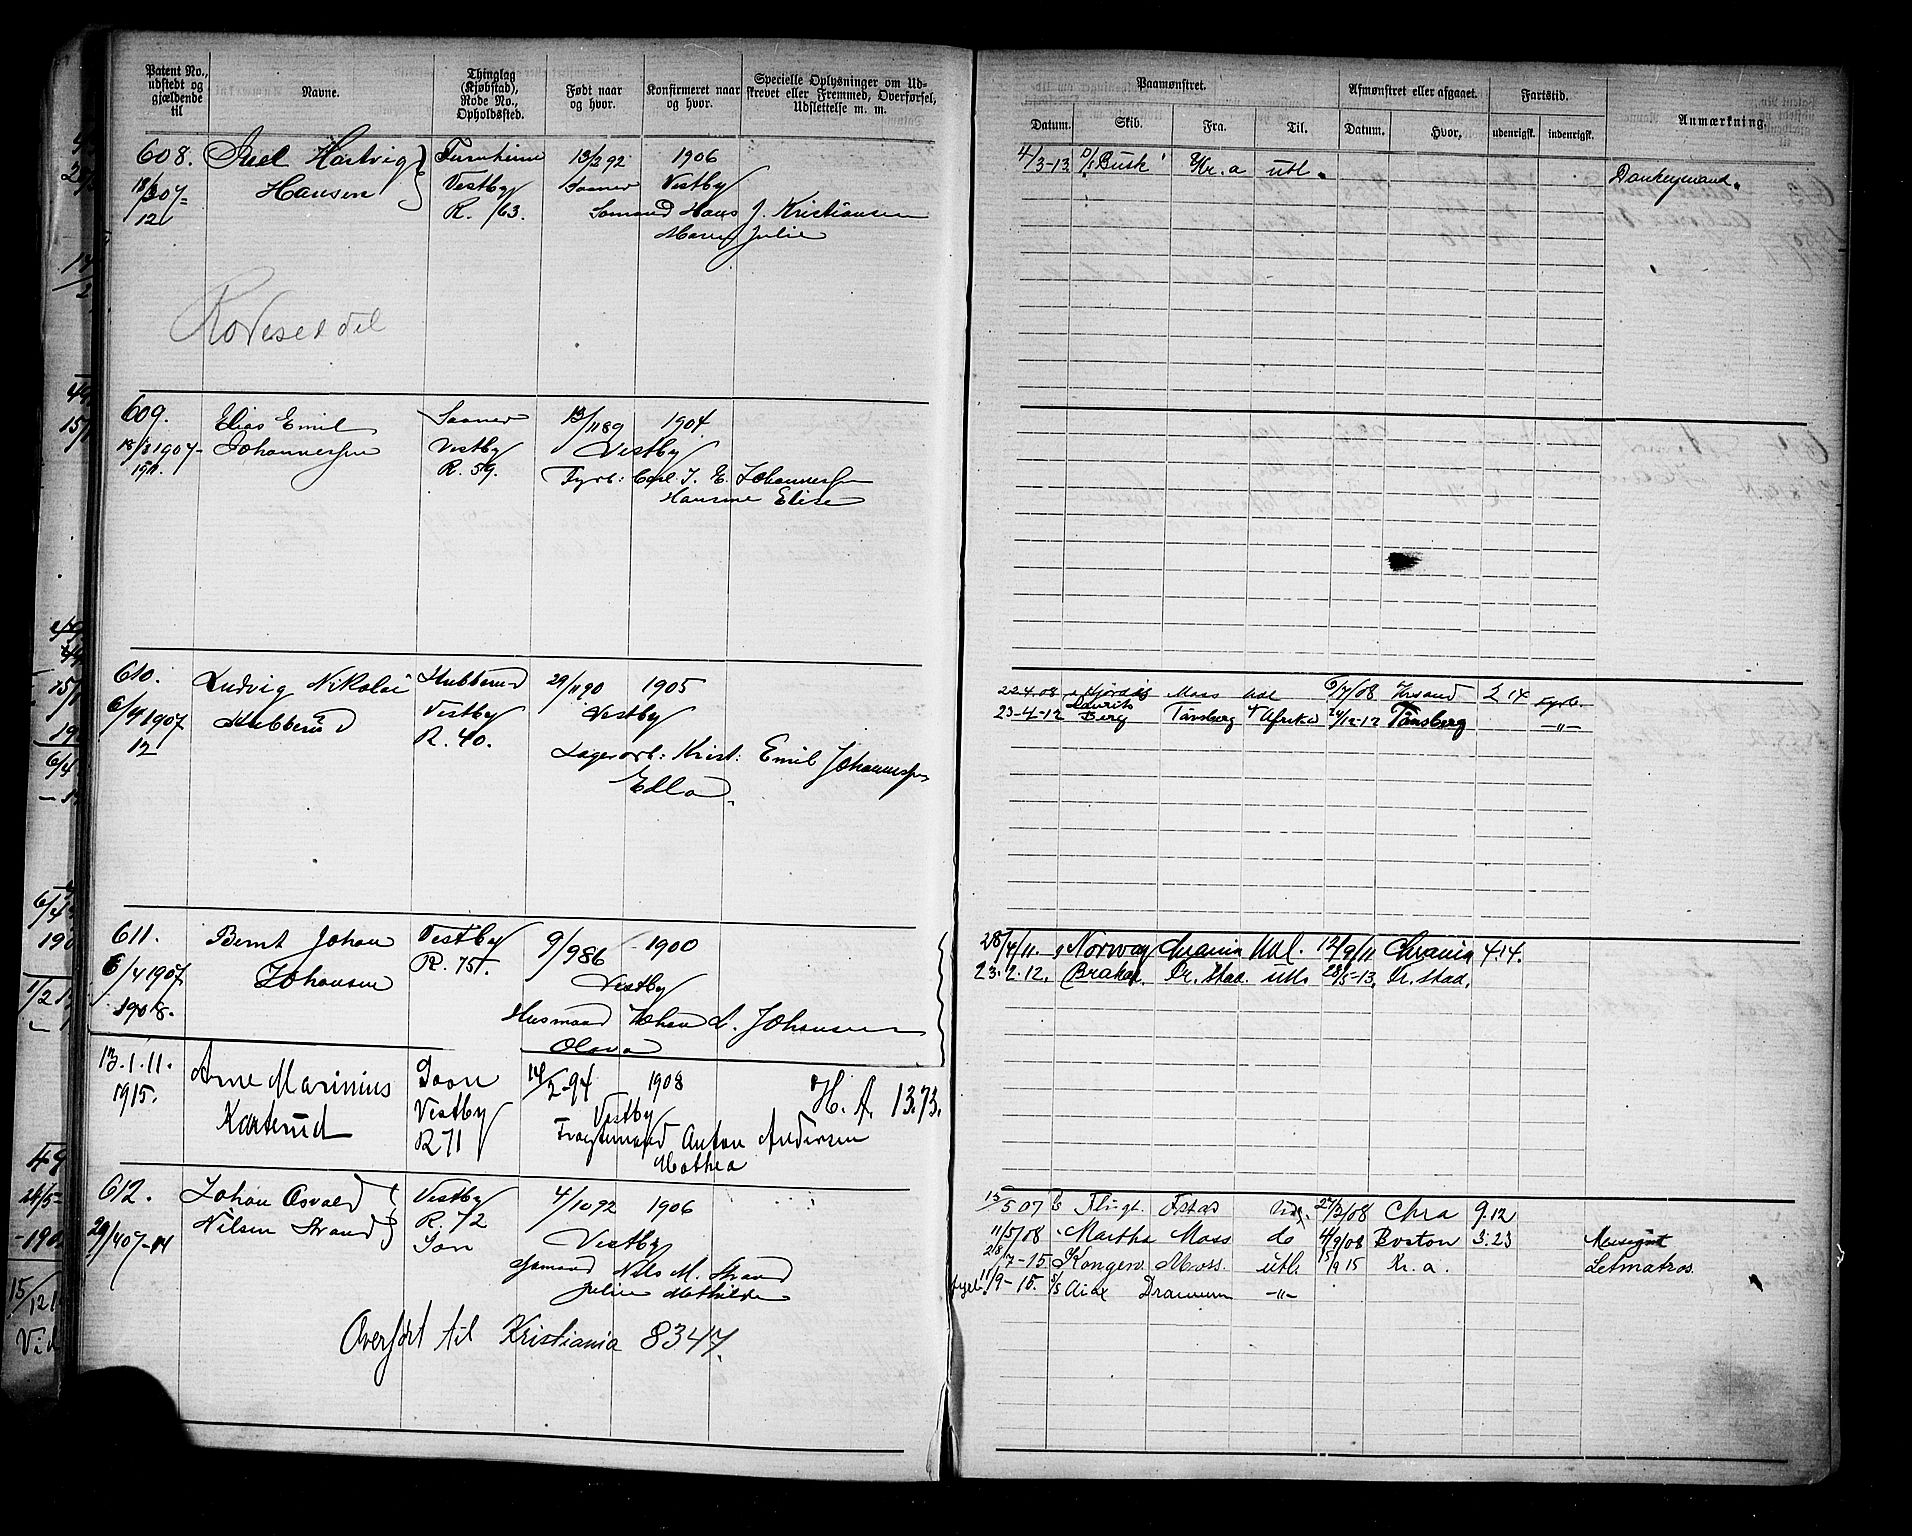 Patent No., udstedt og gjældende til
Navne.
Thinglag (Kjøbstad), Rode No., Opholdssted.
Født naar og hvor.
Konfirmeret naar og hvor.
Specielle Oplysninger om Udskrevet eller Fremmed, Overførsel, Udslettelse m. m.
Paamønstret.
Afmønstret eller afgaaet.
Fartstid.
Anmærkning.
Datum.
Skib.
Fra.
Til.
Datum.
Hvor.
udenrigsk.
indenrigsk.
608.
Hartvig
Hansen
18/3 07=
12
Vestby
R. 163.
13/2 92
1906
Vestby
Hans J. Kristiansen
Maren Julie
4/3-13
D/S Busk
Kr.a
utl.
Donkeymand.
609.
Elias Emil
Johannessen
18/3 1907-
Vestby
R. 59.
13/11 89
1904
Vestby
Fyrb: Carl J. E. Johannessen
Hansine Elise
610.
Ludvig Nikolai
Hubberud
6/4 1907
12
Hubberud
Vestby
R. 40.
29/11 90
1905
Vestby
Lagerarb: Krist: Emil Johannessen
Edla.
22.4.08
Hjørdis
Moss
Udl
6/7/08
Krsand
2 14
23-4-12
Laurits Berg
Tønsberg
Afrika
24/12-12
Tønsberg
-"-
611.
Bernt Johan
Johansen
6/4 1907
1908.
Vestby
R. 75.
9/9 86
1900
Vestby
Husmand Johan L. Johansen
Olava
28/4/11.
Norway
Chrania
Udl.
12/9/11
Chrania
4 14.
23.2.12.
Brakar.
Fr.stad.
utl.
28/5-13.
Fr.stad.
13.1.11.
1915.
Arne Marinius
Karterud
Soon
Vestby
R 71
14/2-94
1908
Vestby
H. A. 1373.
Anton Andersen
Mathea
612.
Johan Osvald
Nilsen Strand
29/4 07-14
Vestby
R. 72
Son
4/10 92
1906
Vestby
Nils M. Strand
Julie Mathilde
Overført til Kristiania 8347.
13/5 07
Flügt.
Fstad
Udl.
27/2/08
Chra
9.12
11/5/08
Martha
Moss
do
4/9/08
Boston
3.23
28/7-15
Moss
utl.
15/9 15
Kr.a.
Letmatros.
11/9-15.
S/S Aiax
Drammen
-"-